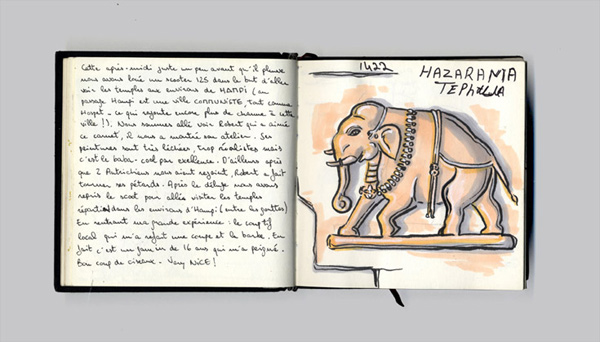 Cette après-midi juste un peu avant qu'il pleuve
nous avons loué un scooter 125 dans le but d'aller
voir les temples aux environs de HAMPI (au
passage Hampi est une ville COMMUNISTE, tout comme
Hospet - ce qui rajoute encore plus de charme à cette
ville !). Nous sommes allé voir Robert qui a aimé
ce carnet, il nous a montré son atelier. Ses
peintures sont très lichées, trop réalistes mais
c'est le baba-cool par excellence. D'ailleurs après
que 2 Autrichiens nous aient rejoint, Robert a fait
tourner ses pétards. Après le déluge nous avons
repris le scoot pour allé visiter les temples
dans les environs d'Hampi (entre les gouttes)
En rentrant ma grande expérience : le coup tif
local qui m'a refait une coupe et la barbe. En
fait c'est un gamin de 16 ans qui m'a peigné.
Bon coup de ciseaux. Very NICE !
1422
HAZARAMA